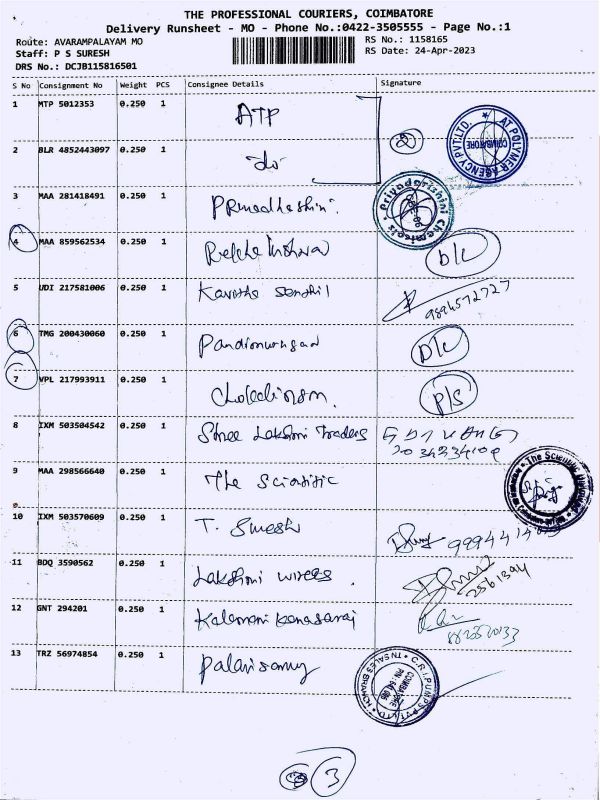 THE PROFESSIONAL COURIERS, COIMBATORE
Delivery Runsheet - MO - Phone No.:0422-3505555 - Page No.:1
Route: AVARAMPALAYAM MO
RS No.: 1158165
Staff: P S SURESH
RS Date: 24-Apr-2023
DRS No.: DCJB115816501
S No Consignment No Weight PCS Consignee Details Signature
1 MTP 5012353 0.250 1 ATP
2
AT POLYMER AGENCY PVT.LTD. COIMBATORE
2 BLR 4852443097 0.250 1 do
3 MAA 281418491 0.250 1
Priyadarishini Chemicals
4 MAA 859562534 0.250 1 D/L
5 UDI 217581006 0.250 1 Kavitha Senthil
9894572727
6 TMG 200430060 0.250 1 Pandiamurugan D/L
7 VPL 217993911 0.250 1 P/S
8 IXM 503504542 0.250 1 Shree Lakshmi Traders
9 MAA 298566640 0.250 1 The Scientific
The Scientific
10 IXM 503570609 0.250 1 T. Suresh
11 BDQ 3590562 0.250 1 Lakshmi wires.
2561394
12 GNT 294201 0.250 1 Kalamani Kanasaraj
13 TRZ 56974854 0.250 1 Palanisamy
C.R.I.PUMPS PVT.LTD TN SALES BRANCH COIMBATORE
3